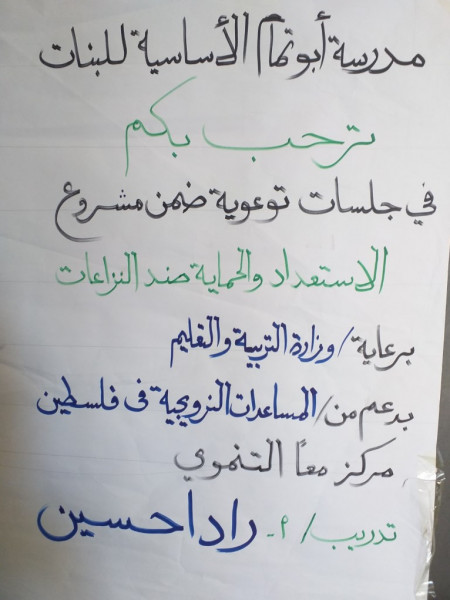 مدرسة أبو تمام الأساسية للبنات
ترحب بكم
في جلسات توعوية ضمن مشروع
الاستعداد والحماية ضد النزاعات
برعاية / وزارة التربية والتعليم
بدعم من / المساعدات النرويجية في فلسطين
مركز معاً التنموي
تدريب / أ. راد احسين